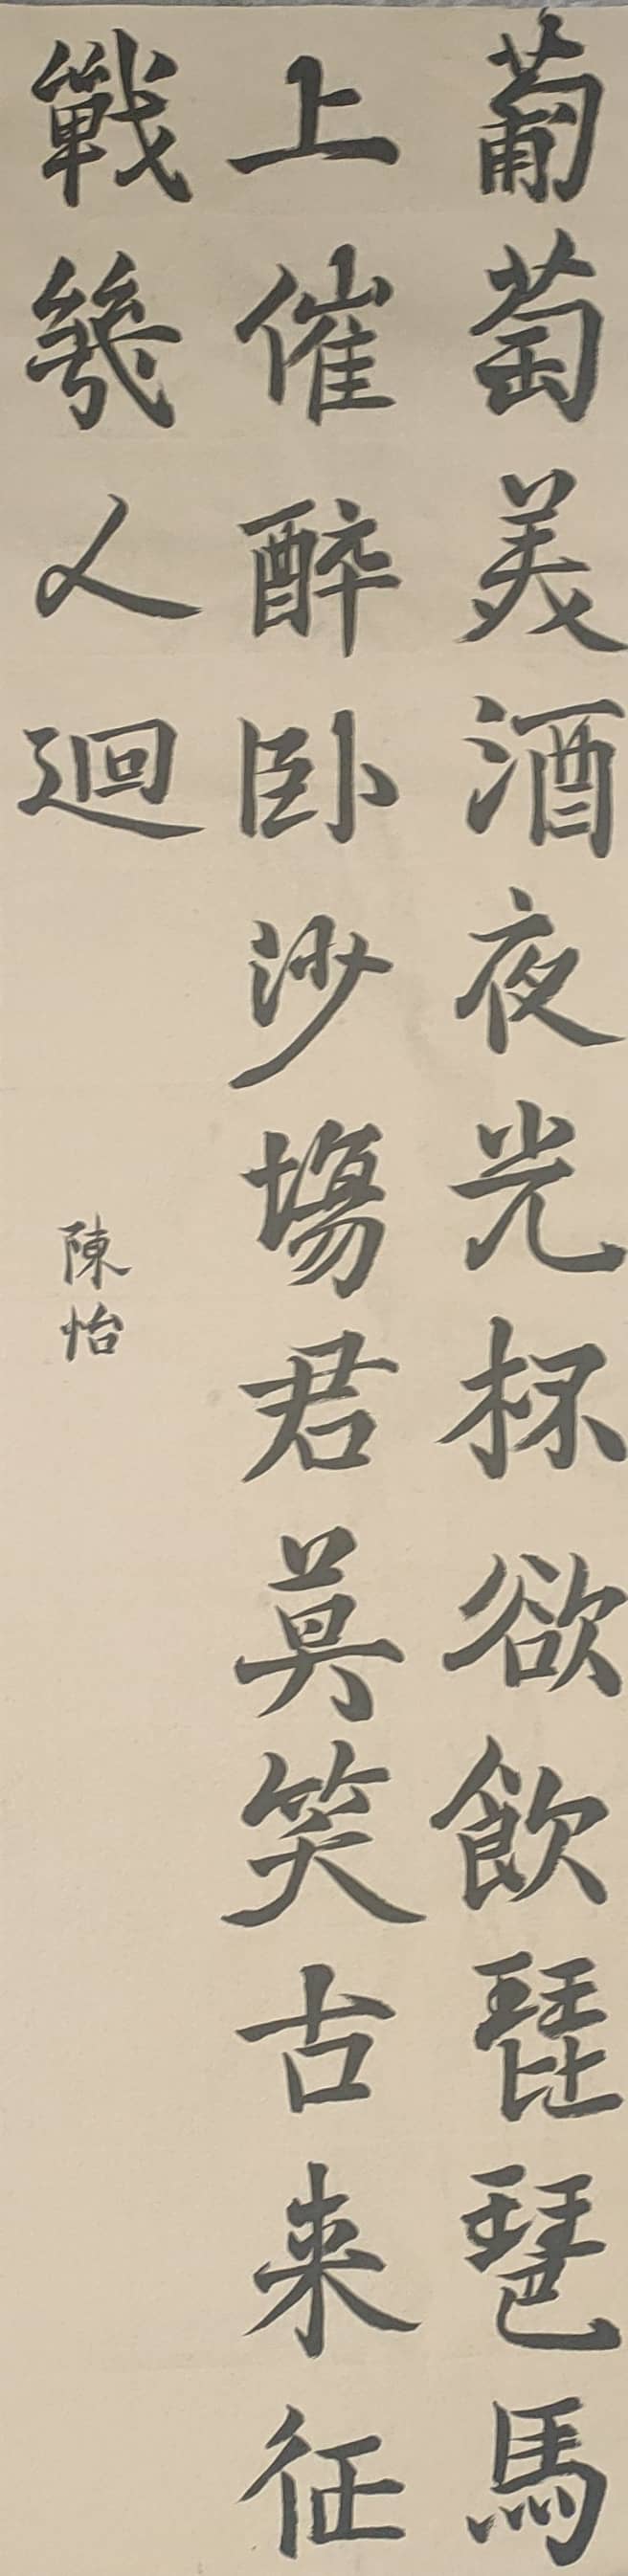 葡萄美酒夜光杯欲飲琵琶馬
上催醉卧沙場君莫笑古来征
戰幾人迴
陳怡